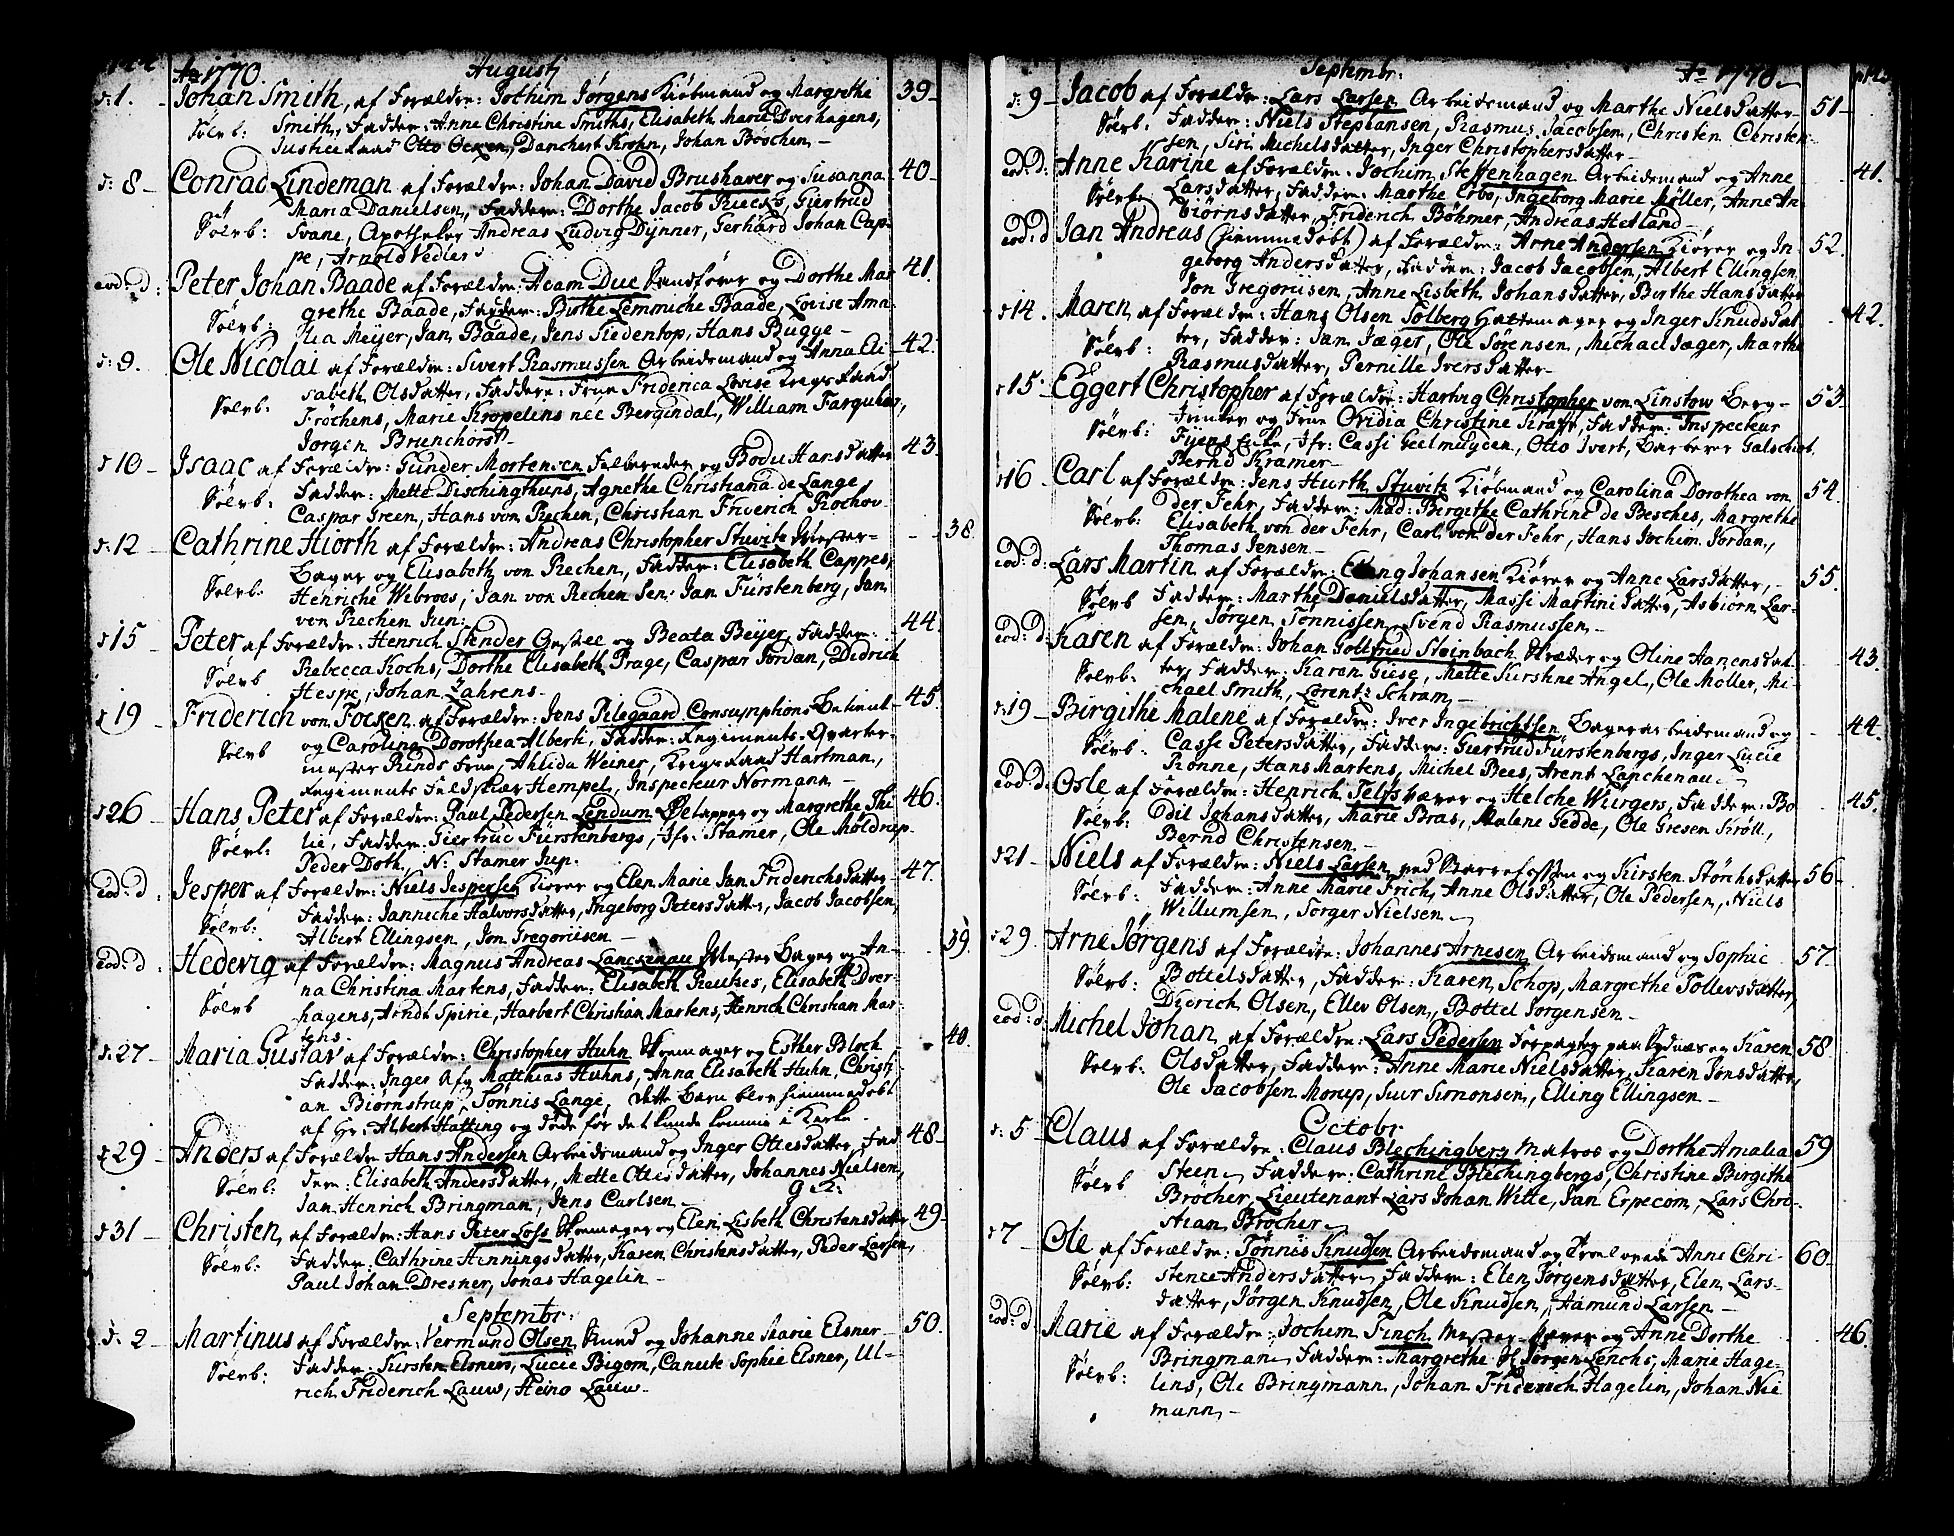 Ao 1770. Augustj
d: 1. Johan Smith, af Forældre: Jochim Jørgens Kiøbmand og Margrethe 39
Sølvb: Smith, Faddere: Anne Christine Smiths, Elisabeth Marie Dverhagens,
Justice Raad Otto Ocken, Danchert Krohn, Johan Bröchen
d: 8 Conrad Lindeman af Forældre: Johan David Brushaver og Susanna 40
Maria Danielsen, Faddere: Dorthe Jacob Riecks, Giertrud
Sølvb: Svane, Apotheker Andreas Ludvig Dynner, Gerhard Johan Cap-
pe, Arnold Vedler
eod: d: Peter Johan Baade af Forældre: Adam Due Handskør og Dorthe Mar 41.
grethe Baade, Faddere: Birthe Lemmiche Baade, Lovise Ama-
Sølvb: lia Meijer, Jan Baade, Jens Tiedentop, Hans Bugge
d: 9. Ole Nicolai af Forældre: Sivert Rasmussen Arbeidsmand og Anna Eli 42.
sabeth Olsdatter, Faddere: Frue Friderica Lovise Krigs Raad
Sølvb: Fröchens, Marie Kropelins née Bergindal, William Farquhar,
Jørgen Brunchorst
d 10 Isaac af Forældre: Gunder Mortensen Felbereder og Bodil Hansdatter 43.
Sølvb: Faddere: Mette Dischingthuns, Agnethe Christiana de Lange
Caspar Green, Hans von Rechen, Christian Friderich Rochov
d: 12 Cathrine Hiorth af Forældre: Andreas Christopher Stuvitz Mester- 38
Bager og Elisabeth von Rechen, Faddere: Elisabeth Cappes,
Sølvb. Henriche Wibroes, Jan von Rechen Sen: Jan Fürstenberg, Jan
von Rechen Jun:
d 15 Peter af Forældre: Henrich Stender Gesell og Beata Beyer, Faddere: 44.
Rebecca Kochs, Dorthe Elisabeth Prage, Caspar Jordan, Didrich
Sølvb Hespe, Johan Zahrens
d 19 Friderich von Focken af Forældre: Jens Pilegaard Consumptions Betient 45.
og Carolina Dorothea Alberti, Faddere: Regiments-Qvarter-
Sølvb mester Rinds Frue, Ahlida Weiner, Krigs Raad Hartman,
Regiments Feldskiær Hempel, Inspecteur Normann
d 26 Hans Peter af Forældre: Paul Pedersen Lendum Øltapper og Margrethe Thi 46.
Sølvb: lie, Faddere: Giertrud Fürstenbergs, Jfr: Stamer, Ole Møldrup
Peder Doth, N: Stamer Jun.
eod: d: Jesper af Forældre: Niels Jespersen Kiører og Elen Marie Jan Friderichsdatter 47.
Faddere: Janniche Halvorsdatter, Ingeborg Petersdatter, Jacob Jacobsen,
Sølvb. Albert Ellingsen, Jon Gregoriisen
eod: d. Hedevig af Forældre: Magnus Andreas Lanchenau Mester Bager og An- 39.
na Christina Martens, Faddere: Elisabeth Reutzes, Elisabeth Dver
Sølvb hagens, Arndt Spirie, Harbert Christian Martens, Henrich Christian Mar-
tens.
d: 27 Maria Gustav af Forældre: Christopher Huhn Skomager og Esther Bloch 40.
Faddere: Inger Matthias Huhns, Anna Elisabeth Huhn, Christi
an Biørnstrup, Tønnis Lange, dette Barn blev hiemmedøbt
af Hr: Albert Hatting og døde før det kunde komme i Kirke
d 29 Anders af Forældre Hans Andersen Arbeidsmand og Inger Ottesdatter, Fad 48
Sølvb. dere: Elisabeth Andersdatter, Mette Ottesdatter, Johannes Nielsen,
Jan Henrich Bringman, Jens Carlsen
d 31 Christen, af Forældre: Hans Peter Loss Skomager og Elen Lisbeth Christensdatter 49
Sølvb: Faddere: Cathrine Henningsdatter, Karen Christensdatter, Peder Larsen,
Paul Johan Dresner, Jonas Hagelin
Septembr:
d: 2 Martinus af Forældre: Vermund Olsen Kund og Johanne Marie Elsner 50.
Sølvb: Faddere: Kirsten Elsners, Lucie Bigom, Canute Sophie Elsner, Ul-
rich Friderich Lauw, Heino Lauw
Septembr: Ao 1770
d: 9 Jacob af Forældre: Lars Larsen Arbeidsmand og Marthe Nielsdatter 51
Sølvb. Faddere: Niels Stephansen, Rasmus Jacobsen, Christen Christen
sen, Siri Michelsdatter, Inger Christophersdatter
eod: d. Anne Karine af Forældre: Jochim Steffenhagen Arbeidsmand og Anne 41.
Sølvb. Larsdatter, Faddere: Marthe Erbo, Ingeborg Marie Møller, Anne An
biørnsdatter, Friderich Böhmer, Andreas Hetland
eod: d Jan Andreas (hiemmedøbt) af Forældre: Arne Andersen Kiører og In- 52.
geborg Andersdatter, Faddere: Jacob Jacobsen, Albert Ellingsen,
Jon Gregoriisen, Anne Lisbeth Johansdatter, Birthe Hansdatter
d 14. Maren af Forældre: Hans Olsen Solberg Hattemager og Inger Knudsdat 42.
Sølvb: ter, Faddere: Jan Jæger, Ole Sørensen, Michael Jæger, Marthe
Rasmusdatter, Pernille Iversdatter
d 15. Eggert Christopher af Forældre: Hartvig Christopher von Linstow Berg- 53
Sølvb: Junker og Frue Ovidia Christine Krafft, Faddere: Inspecteur
Fyens Enke, Jfr: Cassi Geelmuyden, Otto Ivert, Barberer Galschiøt.
Bernd Kramer
d 16 Carl af Forældre: Jens Hiorth Stuvitz Kiøbmand og Carolina Dorothea von 54.
Sølvb: der Fehr, Faddere: Mad: Birgithe Cathrine de Besches, Margrethe
Elisabeth von der Fehr, Carl von der Fehr, Hans Jochim Jordan,
Thomas Jensen
eod: d: Lars Martin af Forældre: Johansen Kiører og Anne Larsdatter, 55.
Sølvb Faddere: Marthe Danielsdatter, Massi Martinidatter, Asbiørn Lar-
sen, Jørgen Tønnissen, Svend Rasmussen
eod: d: Karen af Forældre: Johan Gottfried Steinbach Skræder og Oline Hansdat 43.
Sølvb: ter, Faddere: Karen Giese, Mette Kirstine Angel, Ole Møller, Mi-
chael Smith, Lorentz Schram
d: 19 Birgithe Malene af Forældre: Iver Ingebrichtsen Bagerarbeidsmand og 44.
Sølvb. Casse Petersdatter, Faddere: Giertrud Fürstenbergs, Inger Lucie
Rönne, Hans Martens, Michel Bees, Arent Lanchenau
eod: d. Osle af Forældre: Henrich Selfs Væver og Helche Würgers, Faddere: Bo 45.
Sølvb: dil Johansdatter, Marie Bras, Malene Gedde, Ole Gresen Krøll,
Bernd Christensen
d 21 Niels af Forældre: Niels Larsen ved og Kirsten Störchsdatter 56
Sølvb: Faddere: Anne Marie Frich, Anne Olsdatter, Ole Pedersen, Niels
Willumsen, Torger Nielsen
d 29. Arne Jørgens af Forældre: Johannes Arnesen Arbeidsmand og Sophie 57.
Sølvb: Bottelsdatter, Faddere: Karen Schop, Margrethe Tollevsdatter,
Diderich Olsen, Ellev Olsen, Bottel Jørgensen
eod: d Michel Johan af Forældre: Lars Pedersen Forpagter paa Sydnæs og Karen 58
Sølvb. Olsdatter, Faddere: Anne Marie Nielsdatter, Karen Jonsdatter,
Ole Jacobsen Morup, Siur Simonsen, Elling Ellingsen
Octobr.
d: 5 Claus af Forældre: Claus Blechingberg Matros og Dorthe Amalia 59
Sølvb Steen, Faddere: Cathrine Blechingbergs, Christine Birgithe
Bröcher, Lieutenant Lars Johan Witte, Jan Especom, Lars Chri-
stian Bröcher
d 7 Ole af Forældre: Tønnis Knudsen Arbeidsmand og Trolovede Anne Chri- 60
Sølvb: stence Andersdatter, Faddere: Elen Jørgensdatter, Elen Lars-
datter, Jørgen Knudsen, Ole Knudsen, Aamund Larsen
eod: d Marie af Forældre: Jochem Finch Mester Væver og Anne Dorthe 46.
Sølvb: Bringman, Faddere: Margrethe Sl Jørgen Lenchs, Marie Hage-
lins, Ole Bringmann, Johan Friderich Hagelin, Johan Nie
mann